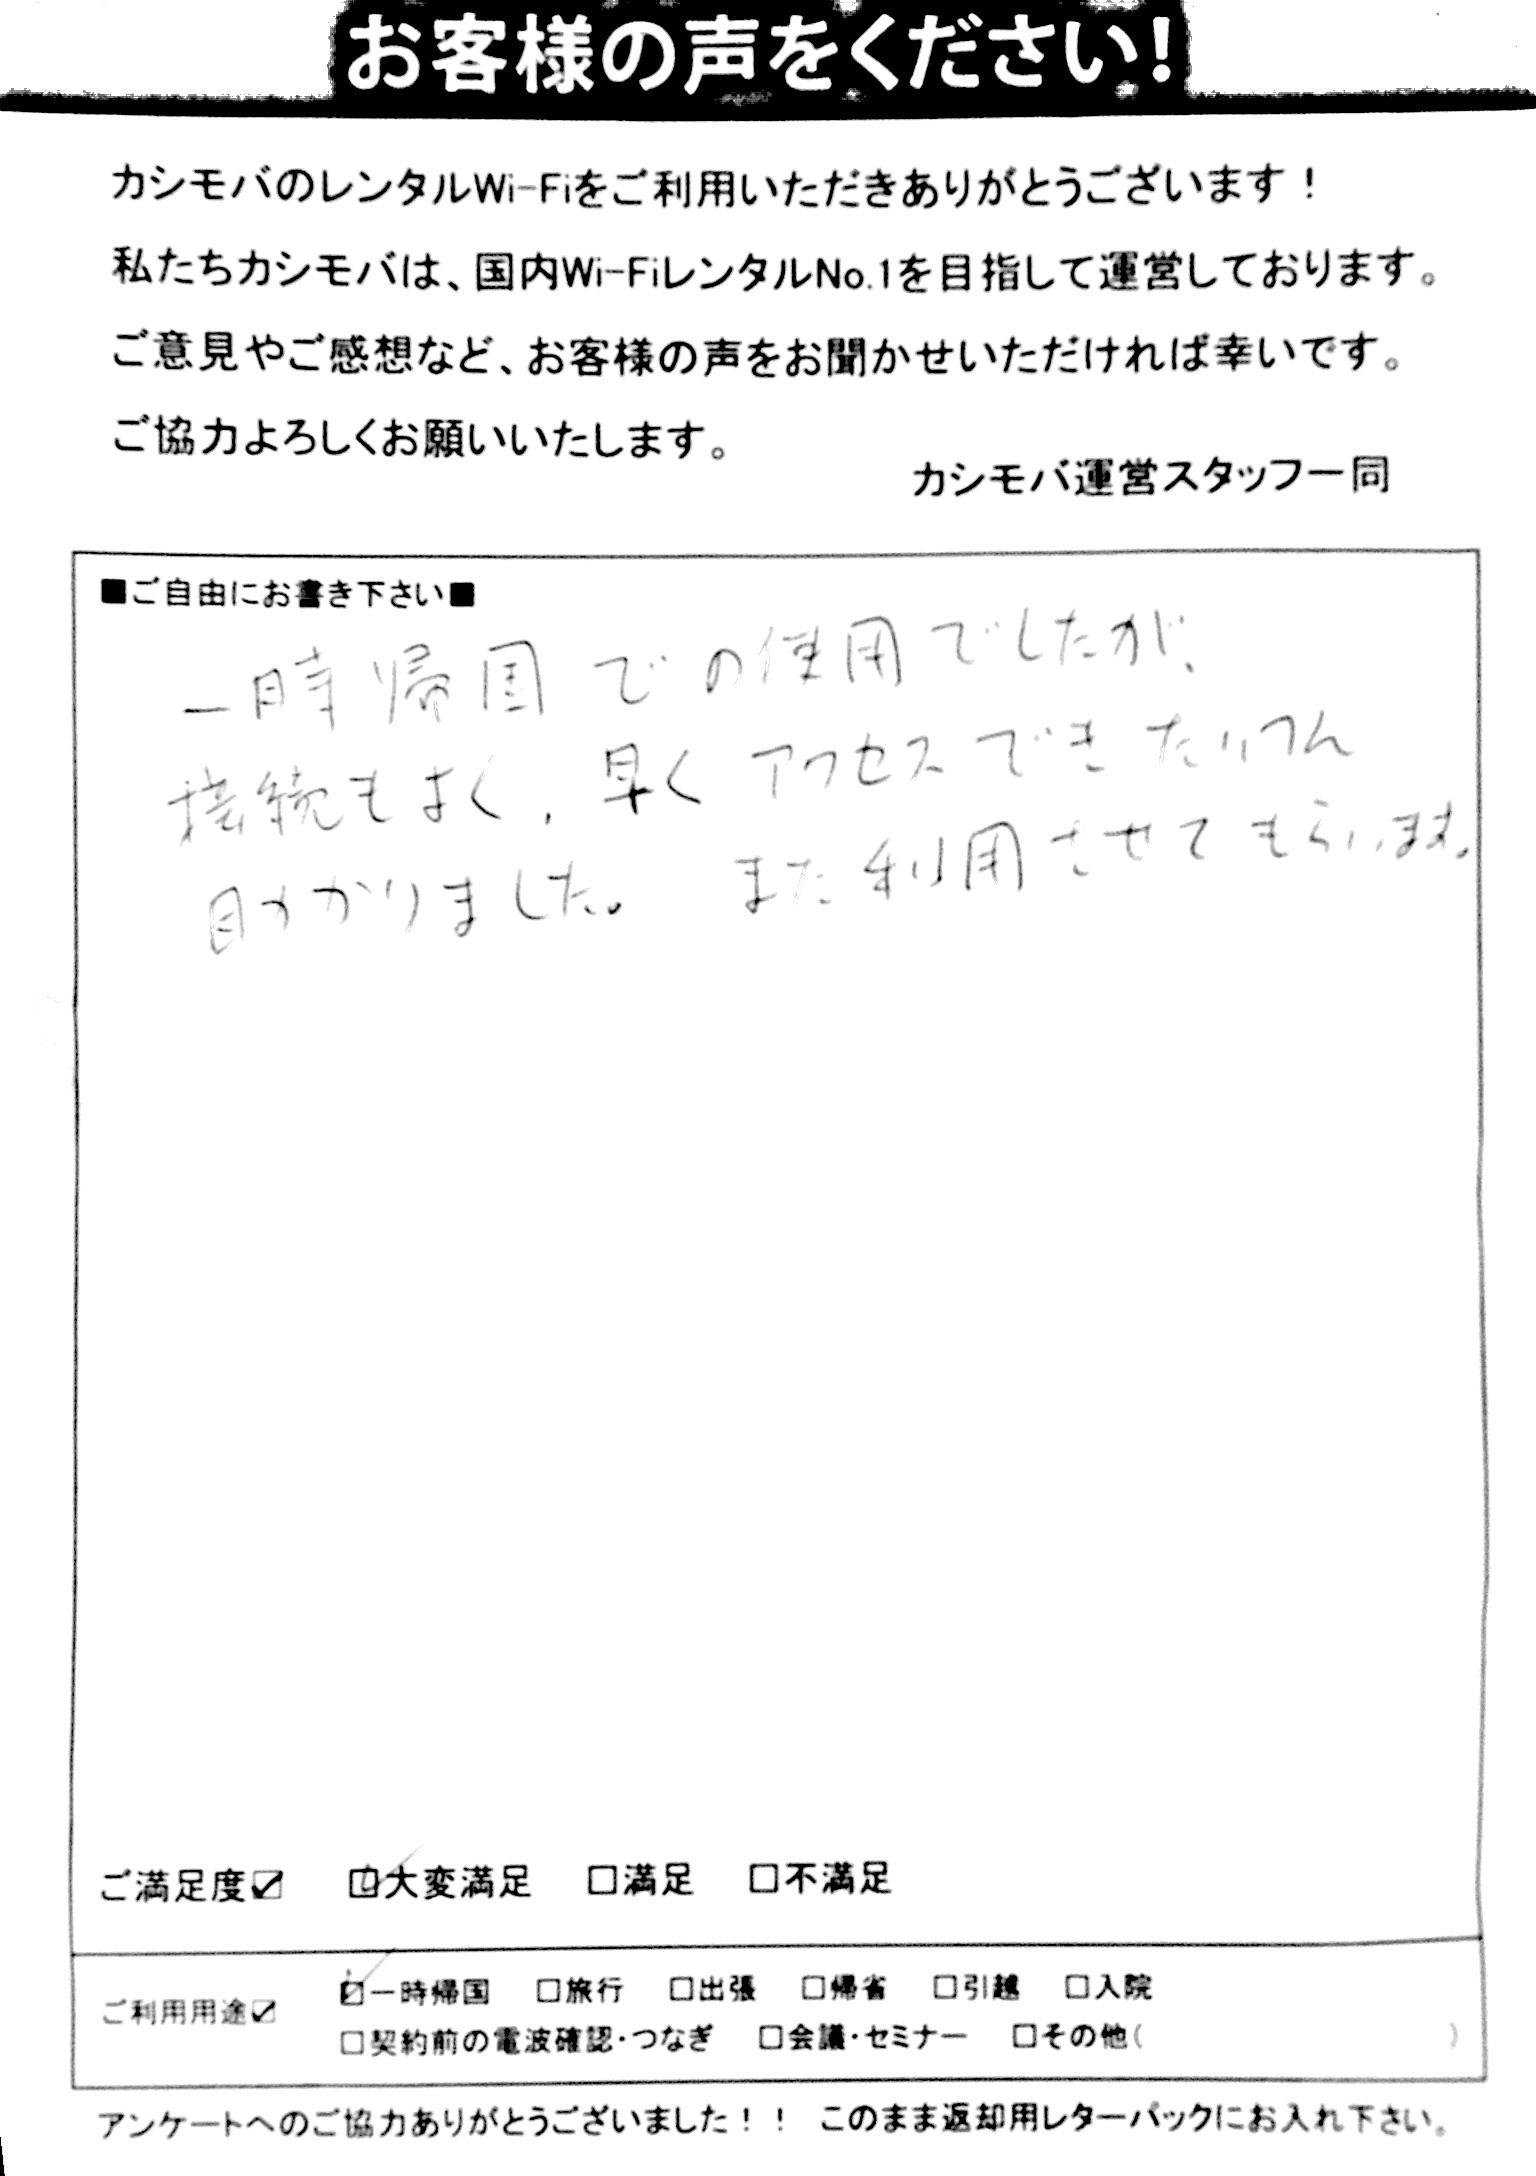 お客様の声をください!
カシモバのレンタルWi-Fiをご利用いただきありがとうございます！
私たちカシモバは、国内Wi-FiレンタルNo.1を目指して運営しております。
ご意見やご感想など、お客様の声をお聞かせいただければ幸いです。
ご協力よろしくお願いいたします。
カシモバ運営スタッフ一同
■ご自由にお書き下さい■
一時帰国での使用でしたが、
接続もよく、早くアクセスできたいつん
助かりました。また利用させてもらいます。
ご満足度☑ ☑大変満足 □満足 □不満足
ご利用用途☑ ☑一時帰国 □旅行 □出張 □帰省 □引越 □入院
□契約前の電波確認・つなぎ □会議・セミナー □その他( )
アンケートへのご協力ありがとうございました！！ このまま返却用レターパックにお入れ下さい。